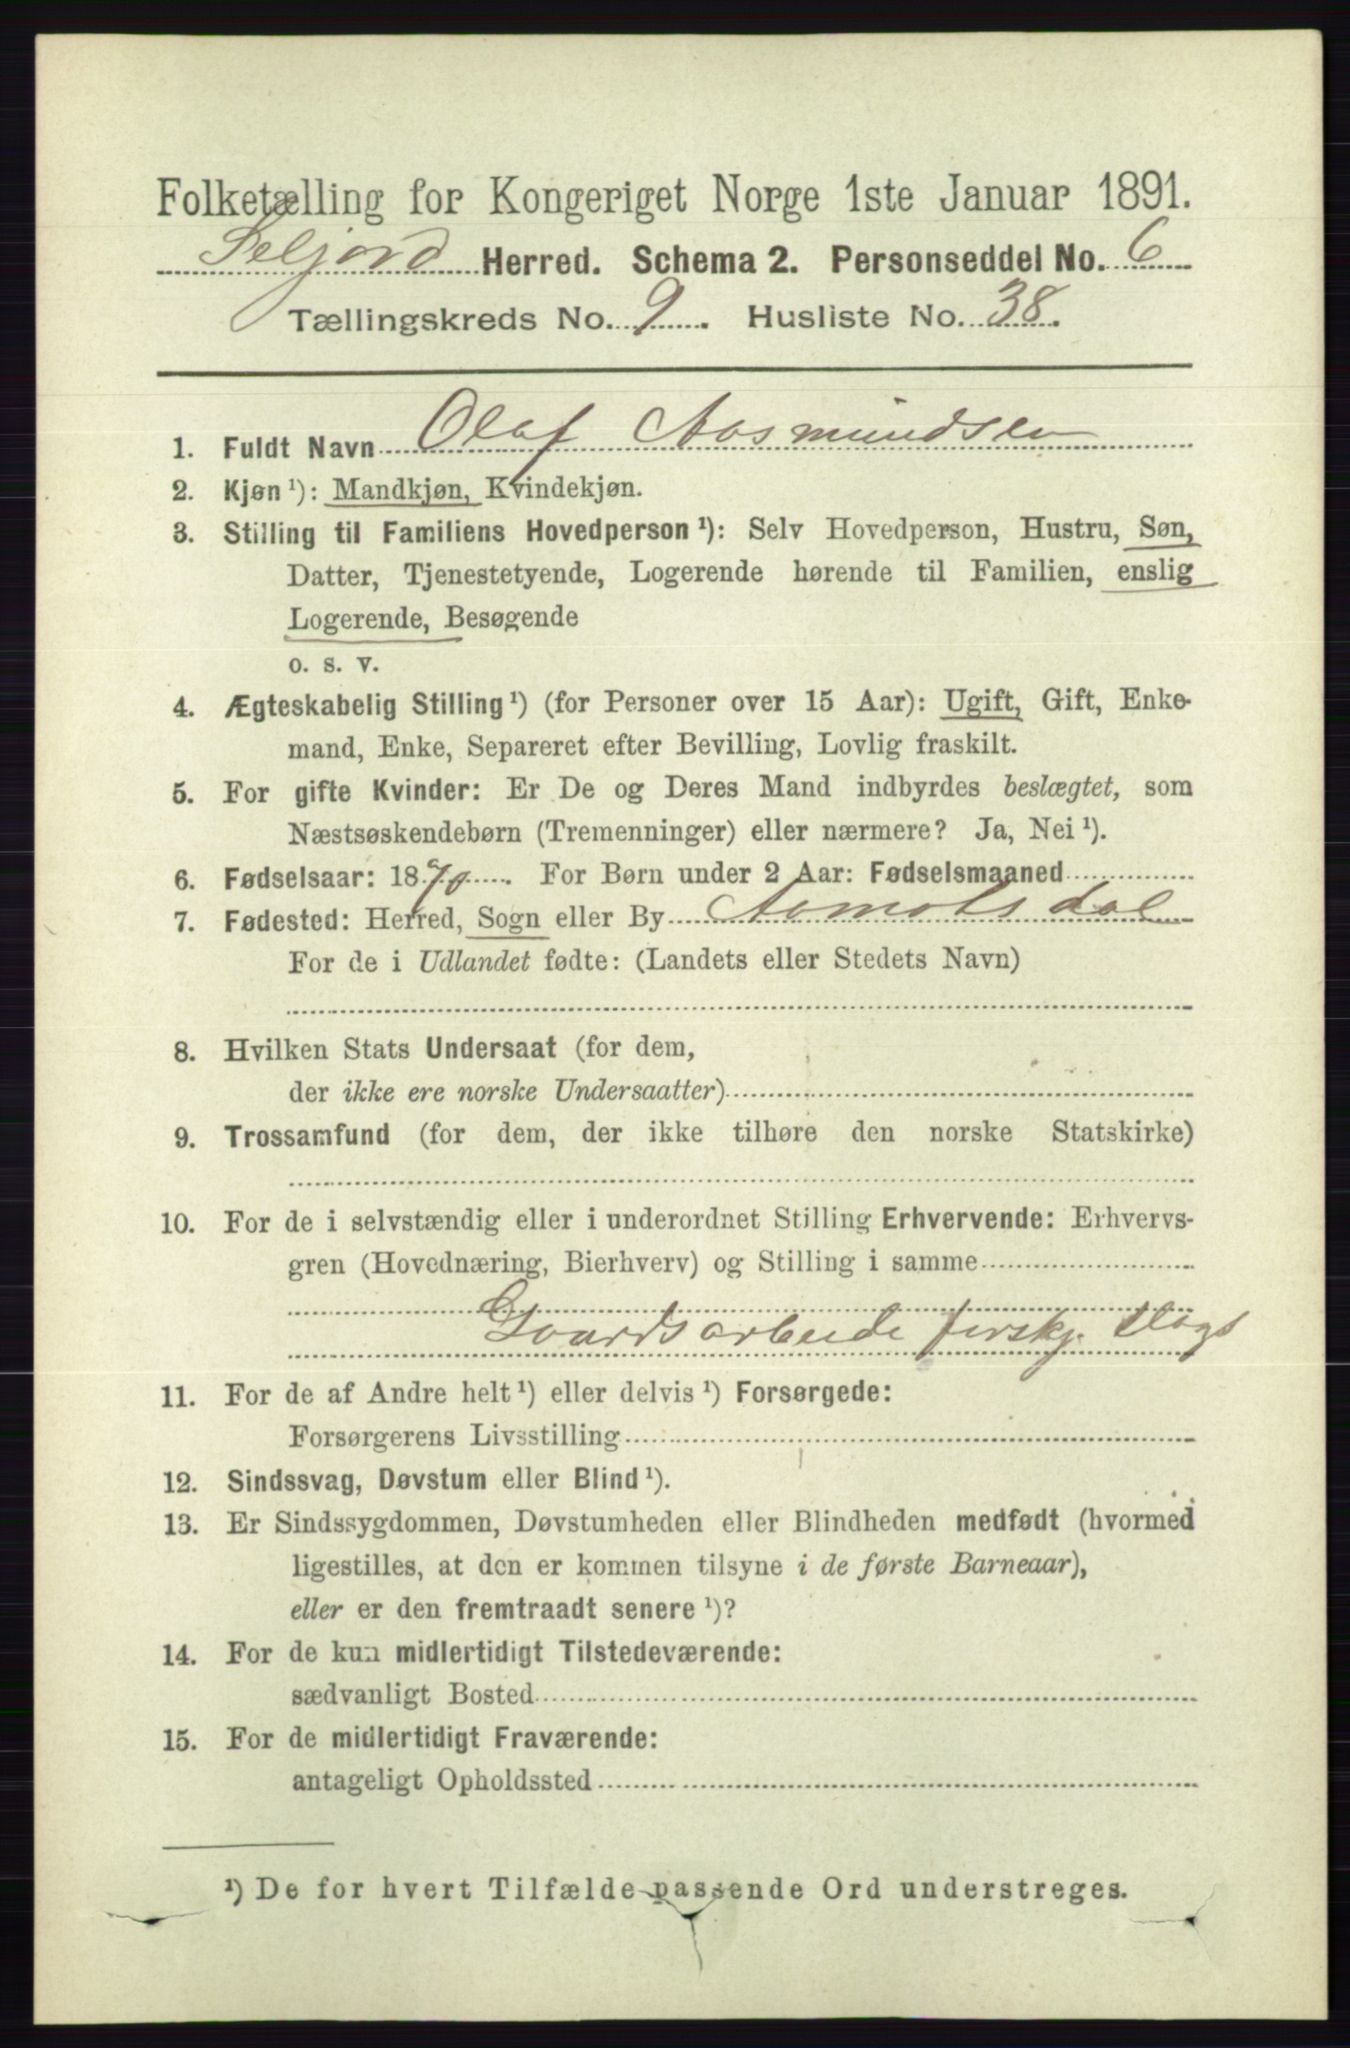 Folketælling for Kongeriget Norge 1ste Januar 1891.
Seljord Herred. Schema 2. Personseddel No. 6
Tællingskreds No. 9. Husliste No. 38.
1. Fuldt Navn Olaf Aasmundsen
2. Kjøn¹): Mandkjøn, Kvindekjøn.
3. Stilling til Familiens Hovedperson¹): Selv Hovedperson, Hustru, Søn,
Datter, Tjenestetyende, Logerende hørende til Familien, enslig
Logerende, Besøgende
o. s. v.
4. Ægteskabelig Stilling¹) (for Personer over 15 Aar): Ugift, Gift, Enke-
mand, Enke, Separeret efter Bevilling, Lovlig fraskilt.
5. For gifte Kvinder: Er De og Deres Mand indbyrdes beslægtet, som
Næstsøskendebørn (Tremenninger) eller nærmere? Ja, Nei¹).
6. Fødselsaar: 1870. For Børn under 2 Aar: Fødselsmaaned
7. Fødested: Herred, Sogn eller By Aamotsdal
For de i Udlandet fødte: (Landets eller Stedets Navn)
8. Hvilken Stats Undersaat (for dem,
der ikke ere norske Undersaatter)
9. Trossamfund (for dem, der ikke tilhøre den norske Statskirke)
10. For de i selvstændig eller i underordnet Stilling Erhvervende: Erhvervs-
gren (Hovednæring, Bierhverv) og Stilling i samme
Gaardsarbeide forskj. Slags
11. For de af Andre helt¹) eller delvis¹) Forsørgede:
Forsørgerens Livsstilling
12. Sindssvag, Døvstum eller Blind¹).
13. Er Sindssygdommen, Døvstumheden eller Blindheden medfødt (hvormed
ligestilles, at den er kommen tilsyne i de første Barneaar),
eller er den fremtraadt senere¹)?
14. For de kun midlertidigt Tilstedeværende:
sædvanligt Bosted
15. For de midlertidigt Fraværende:
antageligt Opholdssted
¹) De for hvert Tilfælde passende Ord understreges.